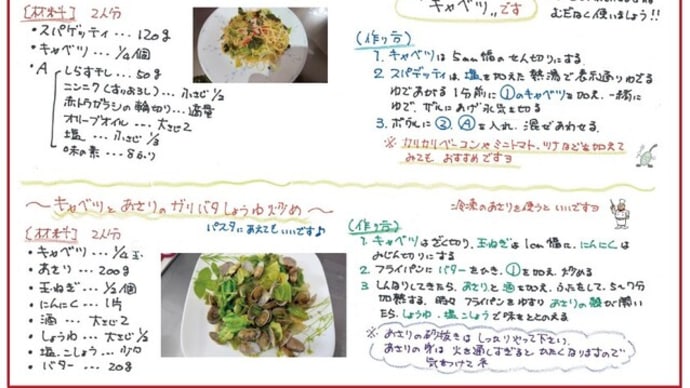 キャベツ〟です
むだなく使いましょう!!
[材料] 2人分
・スパゲッティ … 120g
・キャベツ … 1/4個
・A
しらす干し … 50g
ニンニク(すりおろし) … 小さじ1/2
赤トウガラシの輪切り … 適量
オリーブオイル … 大さじ2
塩 … 小さじ1/3
味の素 … 8ふり
(作り方)
1. キャベツは5mm幅のせん切りにする
2. スパゲッティは、塩を加えた熱湯で表示通りゆでる
ゆであがる1分前に①のキャベツを加え、一緒に
ゆで、ザルにあげ水気を切る
3. ボウルに②、Aを入れ、混ぜあわせる
※カリカリベーコンやミニトマト、ツナなどを加えて
みても おすすめですヨ
〜キャベツとあさりのガリバタしょうゆ炒め〜
冷凍のあさりを使うといいですヨ
パスタにあえてもいいです♪
[材料] 2人分
・キャベツ … 1/4玉
・あさり … 200g
・玉ねぎ … 1/2個
・にんにく … 1片
・酒 … 大さじ2
・しょうゆ … 大さじ1/2
・塩、こしょう … 少々
・バター … 20g
(作り方)
1. キャベツはざく切り、玉ねぎは1cm幅に、にんにくは
みじん切りにする
2. フライパンにバターをひき、①を加え、炒める
3. しんなりしてきたら、あさりと酒を加え、ふたをして、5〜7分
加熱する。時々フライパンをゆすり あさりの殻が開い
たら、しょうゆ・塩こしょうで味をととのえる
※あさりの砂抜きは しっかりやって下さい。
あさりの身は 火を通しすぎると かたくなりますので
気をつけてネ